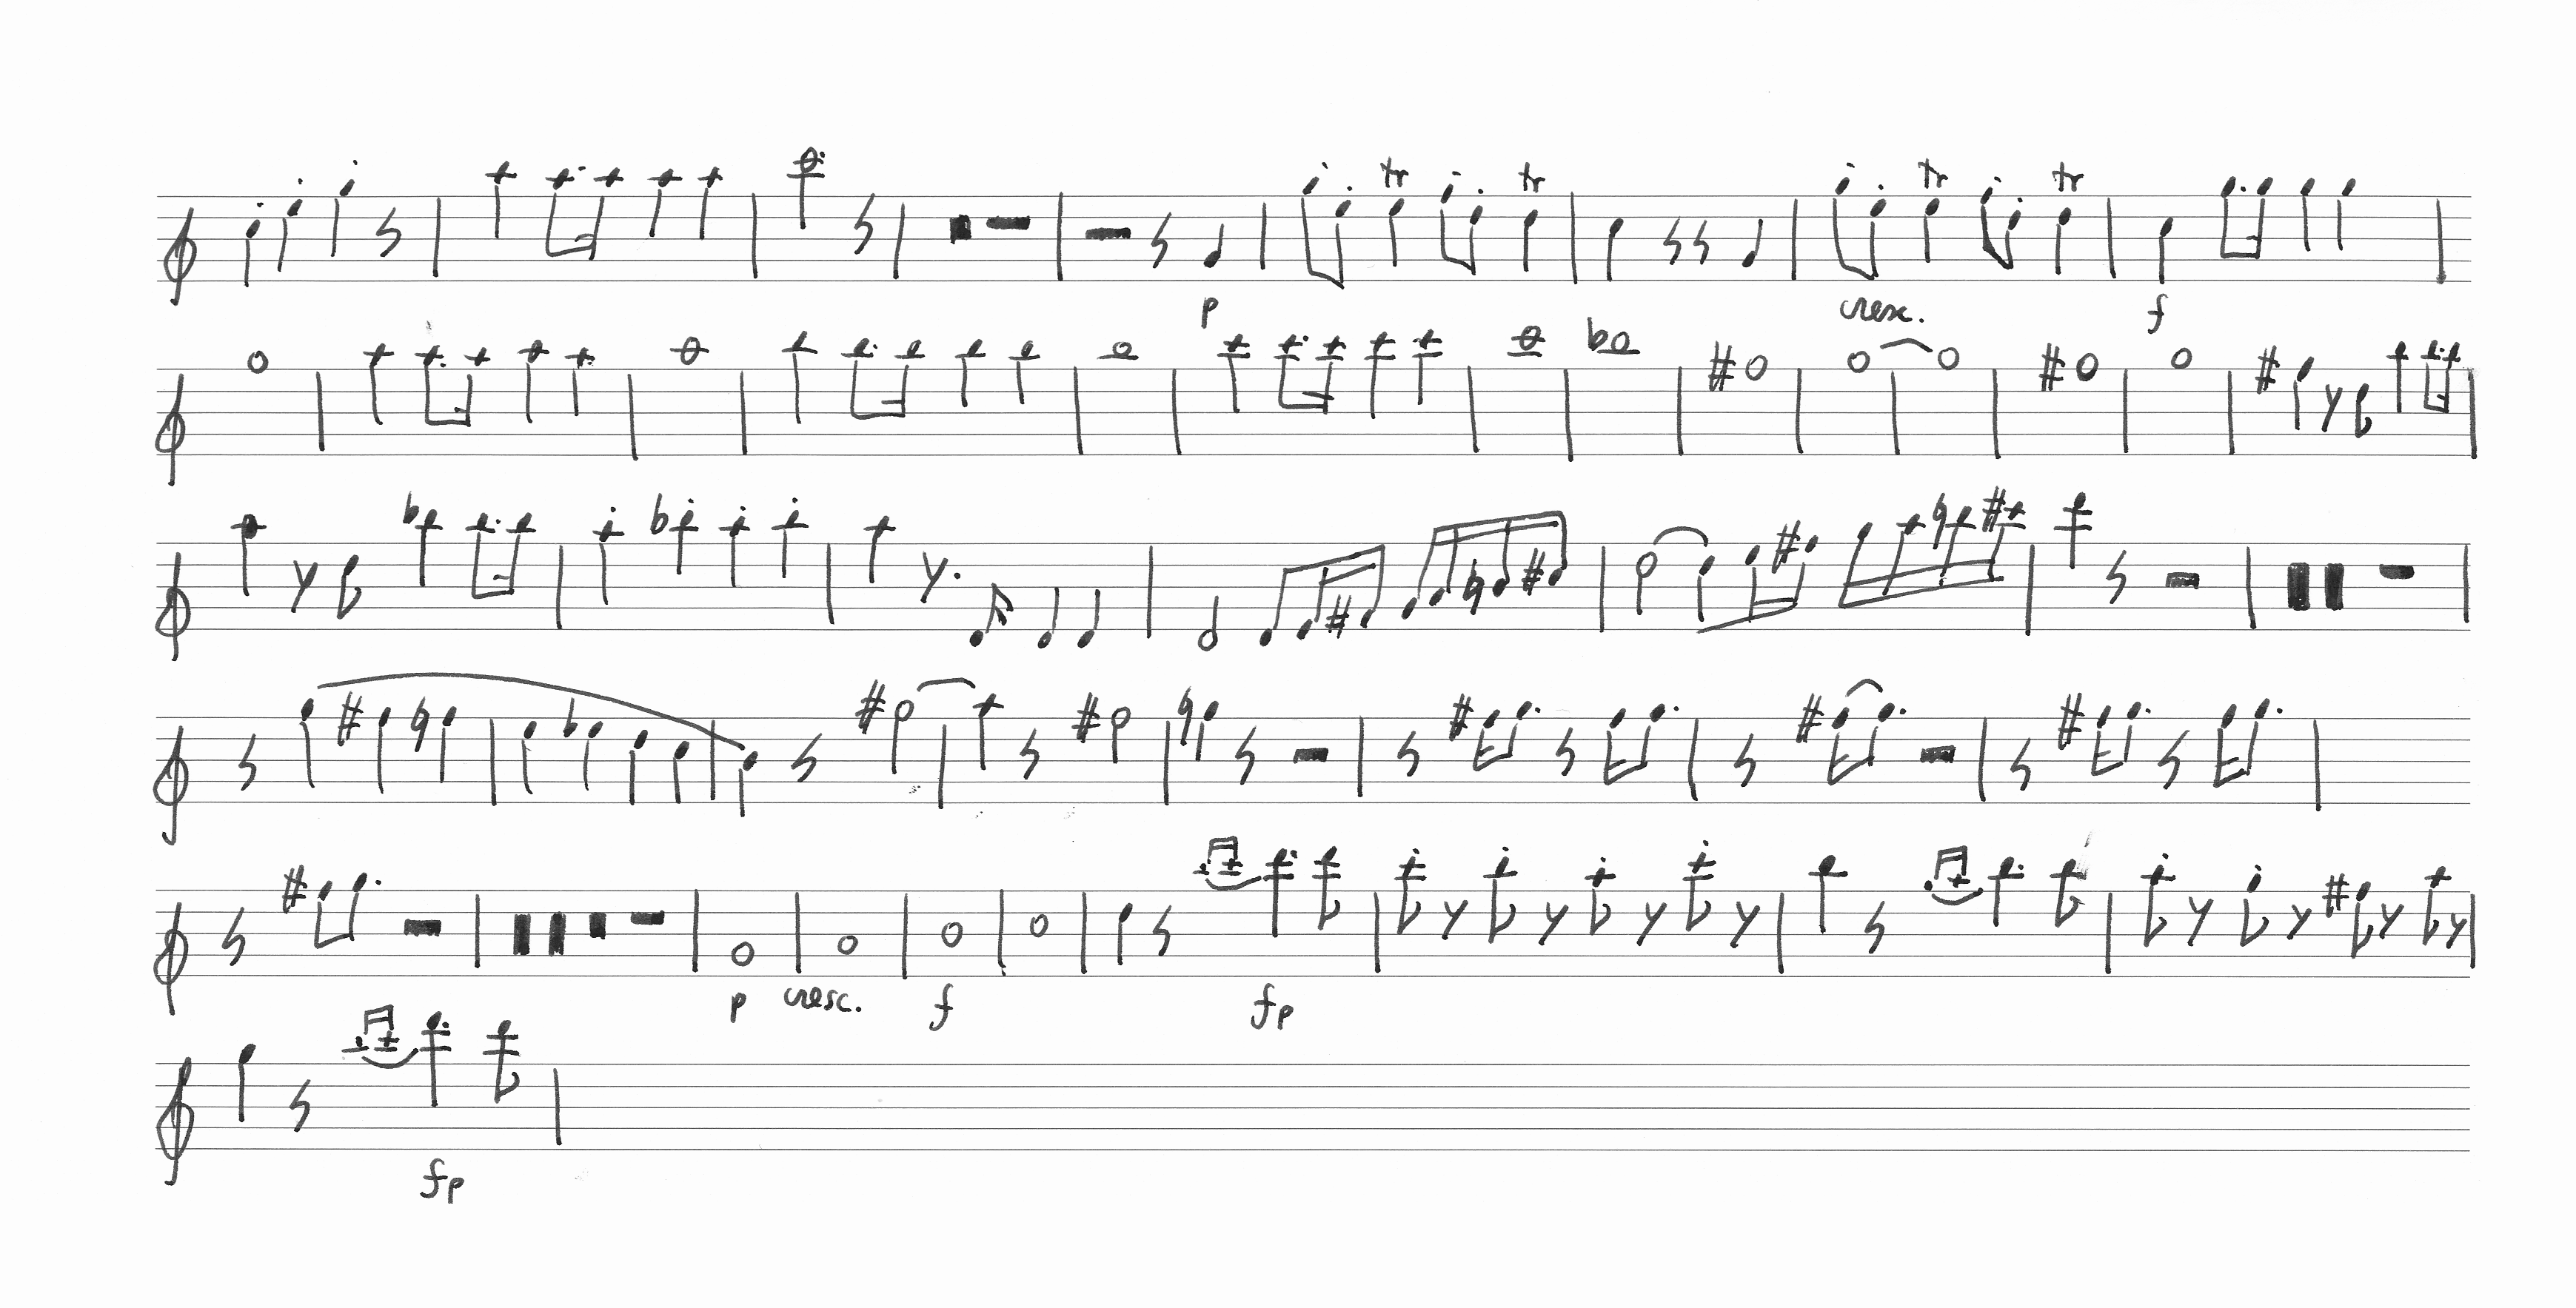 tr tr tr tr
p cresc. f
p cresc. f fp
fp